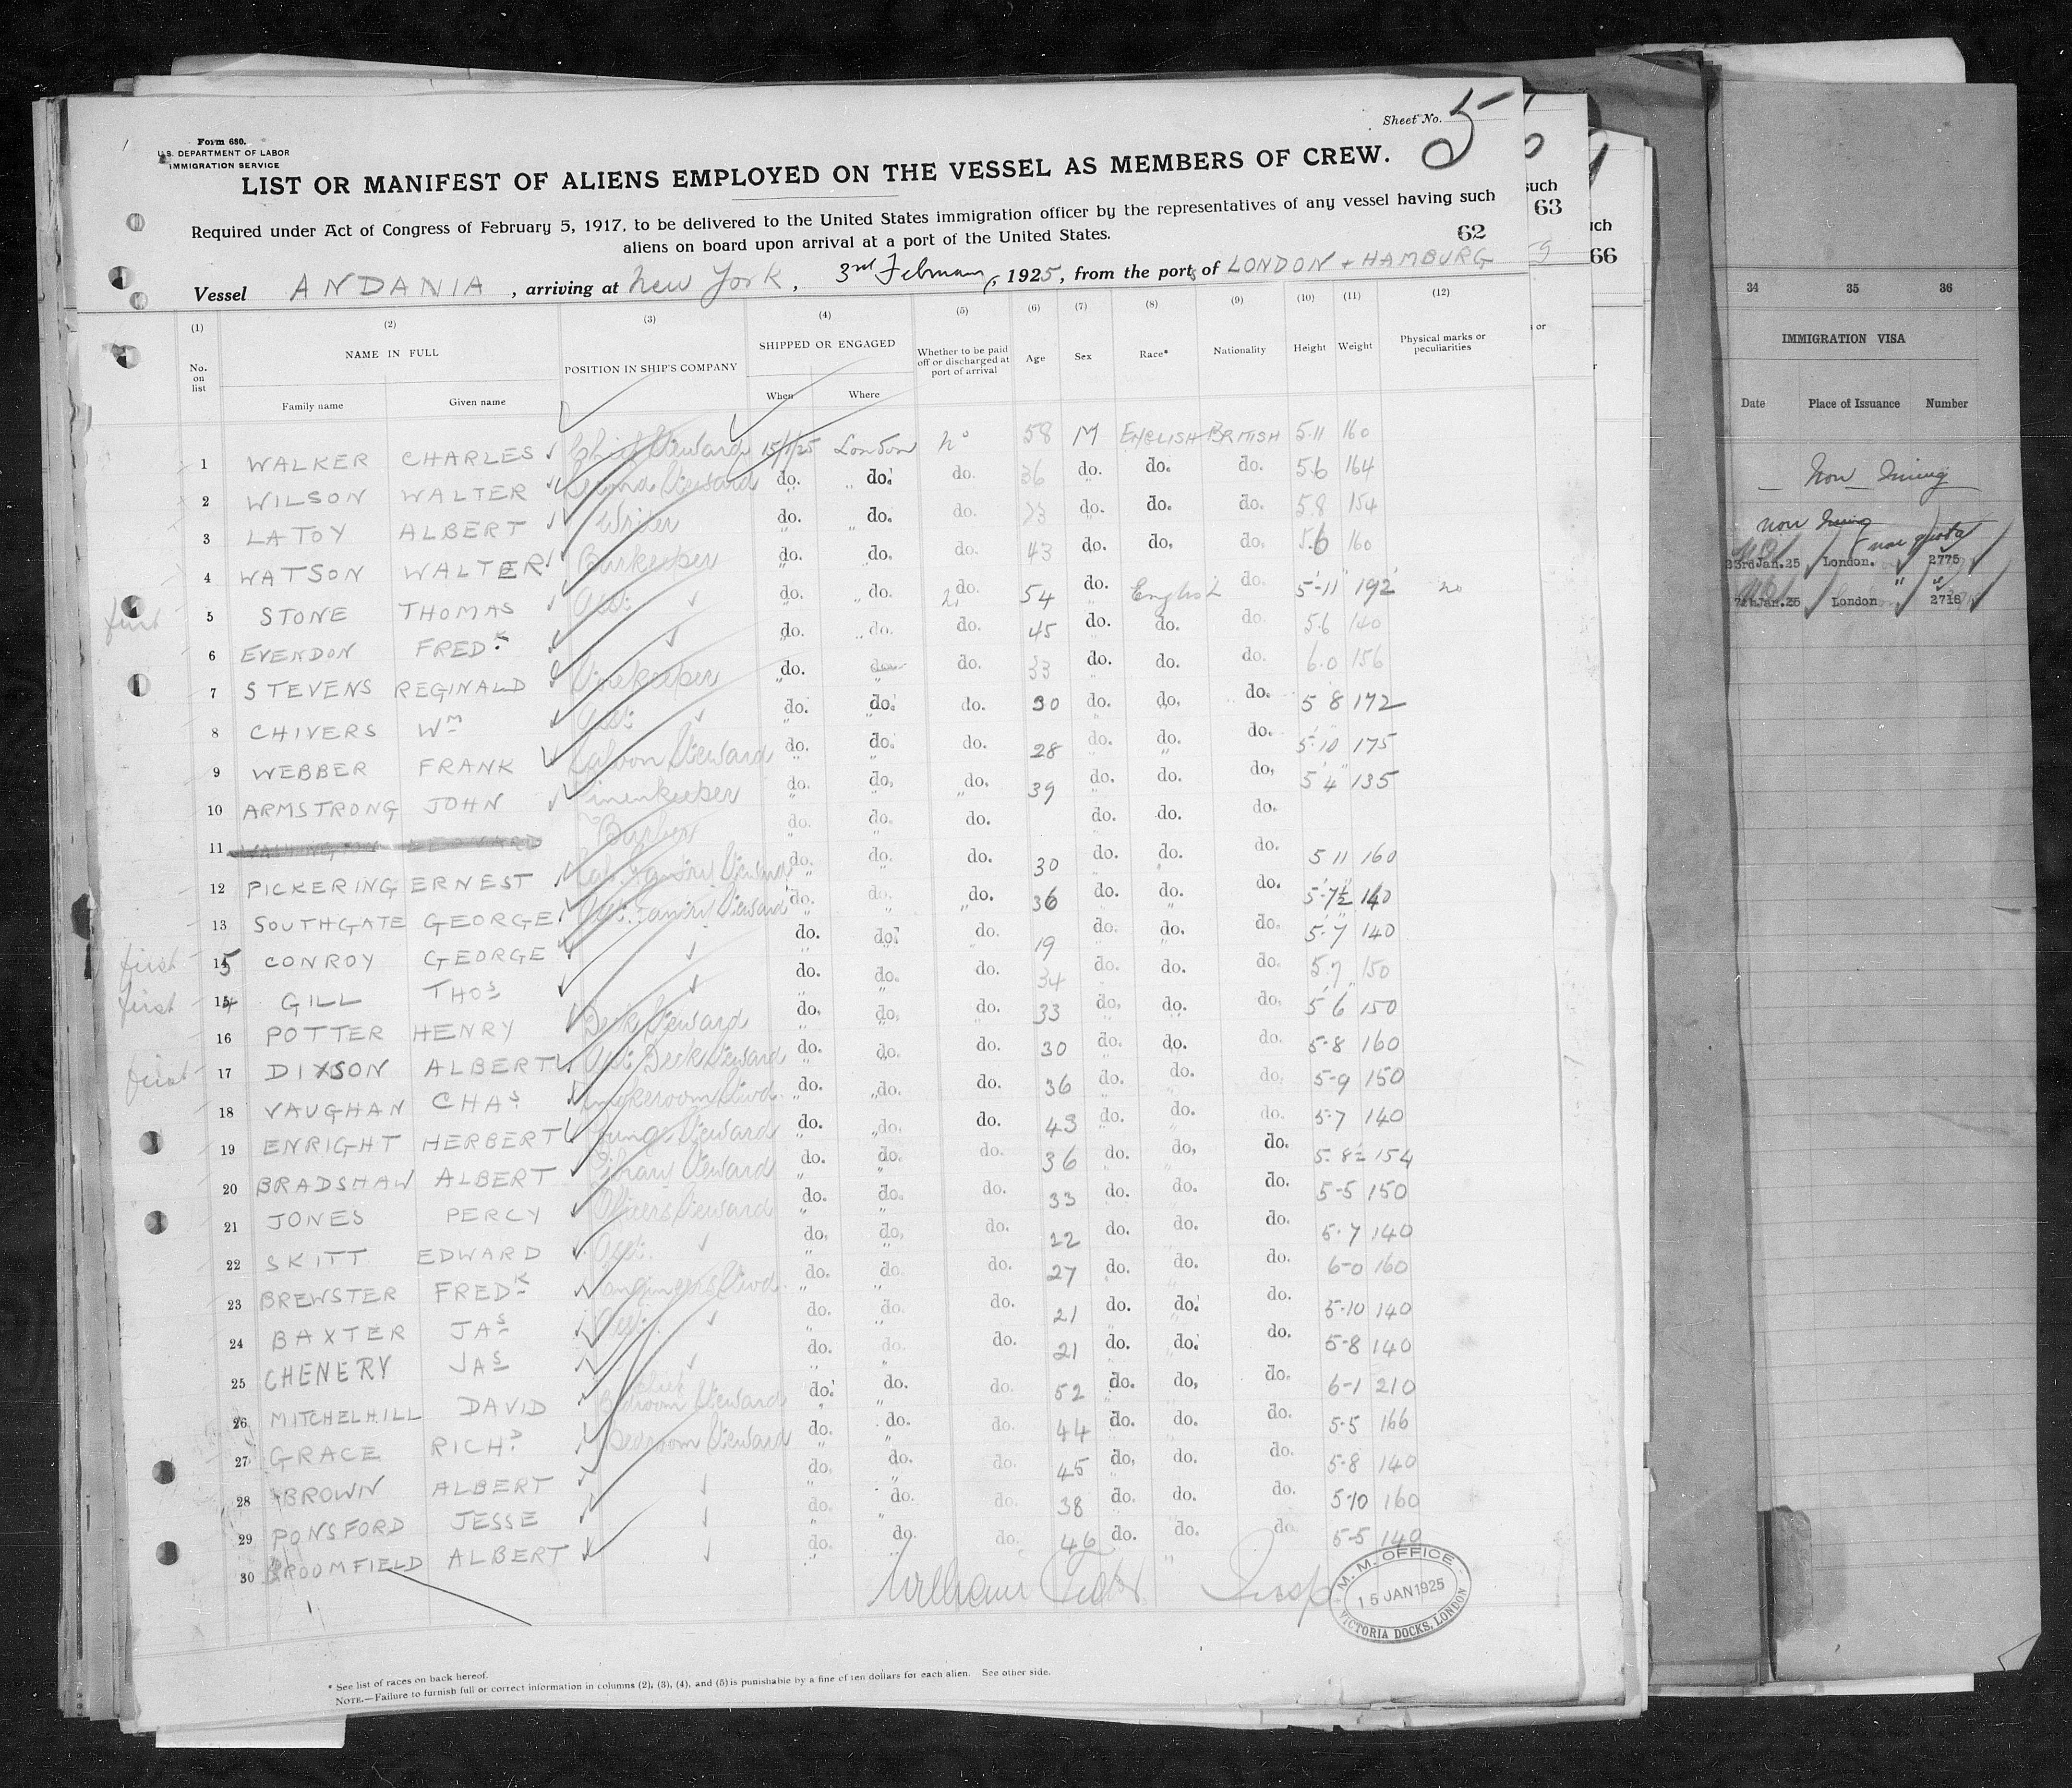 Sheet No. 5
Form 680.
U.S. DEPARTMENT OF LABOR
IMMIGRATION SERVICE
LIST OR MANIFEST OF ALIENS EMPLOYED ON THE VESSEL AS MEMBERS OF CREW.
Required under Act of Congress of February 5, 1917, to be delivered to the United States immigration officer by the representatives of any vessel having such
aliens on board upon arrival at a port of the United States.
62
Vessel ANDANIA, arriving at New York, 3rd February, 1925, from the ports of LONDON + HAMBURG
(1) (2) (3) (4) (5) (6) (7) (8) (9) (10) (11) (12)
No. on list NAME IN FULL Family name Given name POSITION IN SHIP'S COMPANY SHIPPED OR ENGAGED When Where Whether to be paid off or discharged at port of arrival Age Sex Race* Nationality Height Weight Physical marks or peculiarities
1 WALKER CHARLES Chief Steward 15/1/25 London No 58 M ENGLISH BRITISH 5.11 160
2 WILSON WALTER Second Steward do. do. do. 36 do. do. do. 5.6 164
3 LATOY ALBERT Writer do. do. do. 23 do. do. do. 5.8 154
4 WATSON WALTER Barkeeper do. do. do. 43 do. do. do. 5.6 160
first 5 STONE THOMAS Asst. do. do. do. 54 do. English do. 5-11 192 no
6 EVENDON FREDK do. do. do. 45 do. do. do. 5.6 140
7 STEVENS REGINALD Storekeeper do. do. do. 33 do. do. do. 6.0 156
8 CHIVERS WM Asst. do. do. do. 30 do. do. do. 5 8 172
9 WEBBER FRANK Saloon Steward do. do. do. 28 do. do. do. 5-10 175
10 ARMSTRONG JOHN Linenkeeper do. do. do. 39 do. do. do. 5 4 135
11 WASHINGTON EDWARD Barber do. do. do. do. do. do.
12 PICKERING ERNEST Steward do. do. do. 30 do. do. do. 5 11 160
13 SOUTHGATE GEORGE Asst. Pantry Steward do. do. do. 36 do. do. do. 5-7½ 140
first 15 CONROY GEORGE do. do. do. 19 do. do. do. 5-7 140
first 14 GILL THOS do. do. do. 34 do. do. do. 5.7 150
16 POTTER HENRY Deck Steward do. do. do. 33 do. do. do. 5 6 150
first 17 DIXSON ALBERT Asst. Deck Steward do. do. do. 30 do. do. do. 5-8 160
18 VAUGHAN CHAS Smokeroom Stwd. do. do. do. 36 do. do. do. 5-9 150
19 ENRIGHT HERBERT Lounge Steward do. do. do. 43 do. do. do. 5-7 140
20 BRADSHAW ALBERT Library Steward do. do. do. 36 do. do. do. 5-8½ 154
21 JONES PERCY Officers Steward do. do. do. 33 do. do. do. 5-5 150
22 SKITT EDWARD Asst. do. do. do. 22 do. do. do. 5.7 140
23 BREWSTER FREDK Engineers Stwd. do. do. do. 27 do. do. do. 6-0 160
24 BAXTER JAS Asst. do. do. do. 21 do. do. do. 5-10 140
25 CHENERY JAS do. do. do. 21 do. do. do. 5-8 140
26 MITCHELHILL DAVID Chief Bedroom Steward do. do. do. 52 do. do. do. 6-1 210
27 GRACE RICHD Bedroom Steward do. do. do. 44 do. do. do. 5-5 166
28 BROWN ALBERT do. do. do. 45 do. do. do. 5-8 140
29 PONSFORD JESSE do. do. do. 38 do. do. do. 5-10 160
30 BROOMFIELD ALBERT do. do. do. 46 do. do. do. 5-5 140
William Insp
M. M. OFFICE
15 JAN 1925
VICTORIA DOCKS, LONDON
* See list of races on back hereof.
NOTE.—Failure to furnish full or correct information in columns (2), (3), (4), and (5) is punishable by a fine of ten dollars for each alien. See other side.
such
63
ich
66
or
34 35 36
IMMIGRATION VISA
Date Place of Issuance Number
Non
non
non quota
23rd Jan. 25 London. 2775
7th Jan. 25 London 2718